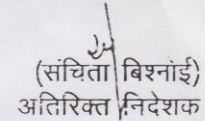 (संचिता बिश्नोई)
अतिरिक्त निदेशक